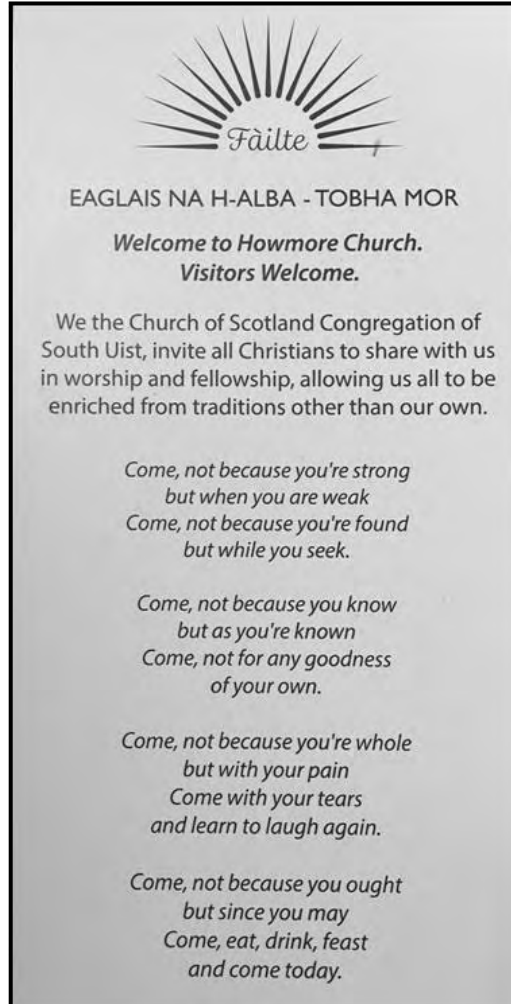 Fàilte
EAGLAIS NA H-ALBA - TOBHA MOR
Welcome to Howmore Church.
Visitors Welcome.
We the Church of Scotland Congregation of
South Uist, invite all Christians to share with us
in worship and fellowship, allowing us all to be
enriched from traditions other than our own.
Come, not because you're strong
but when you are weak
Come, not because you're found
but while you seek.
Come, not because you know
but as you're known
Come, not for any goodness
of your own.
Come, not because you're whole
but with your pain
Come with your tears
and learn to laugh again.
Come, not because you ought
but since you may
Come, eat, drink, feast
and come today.